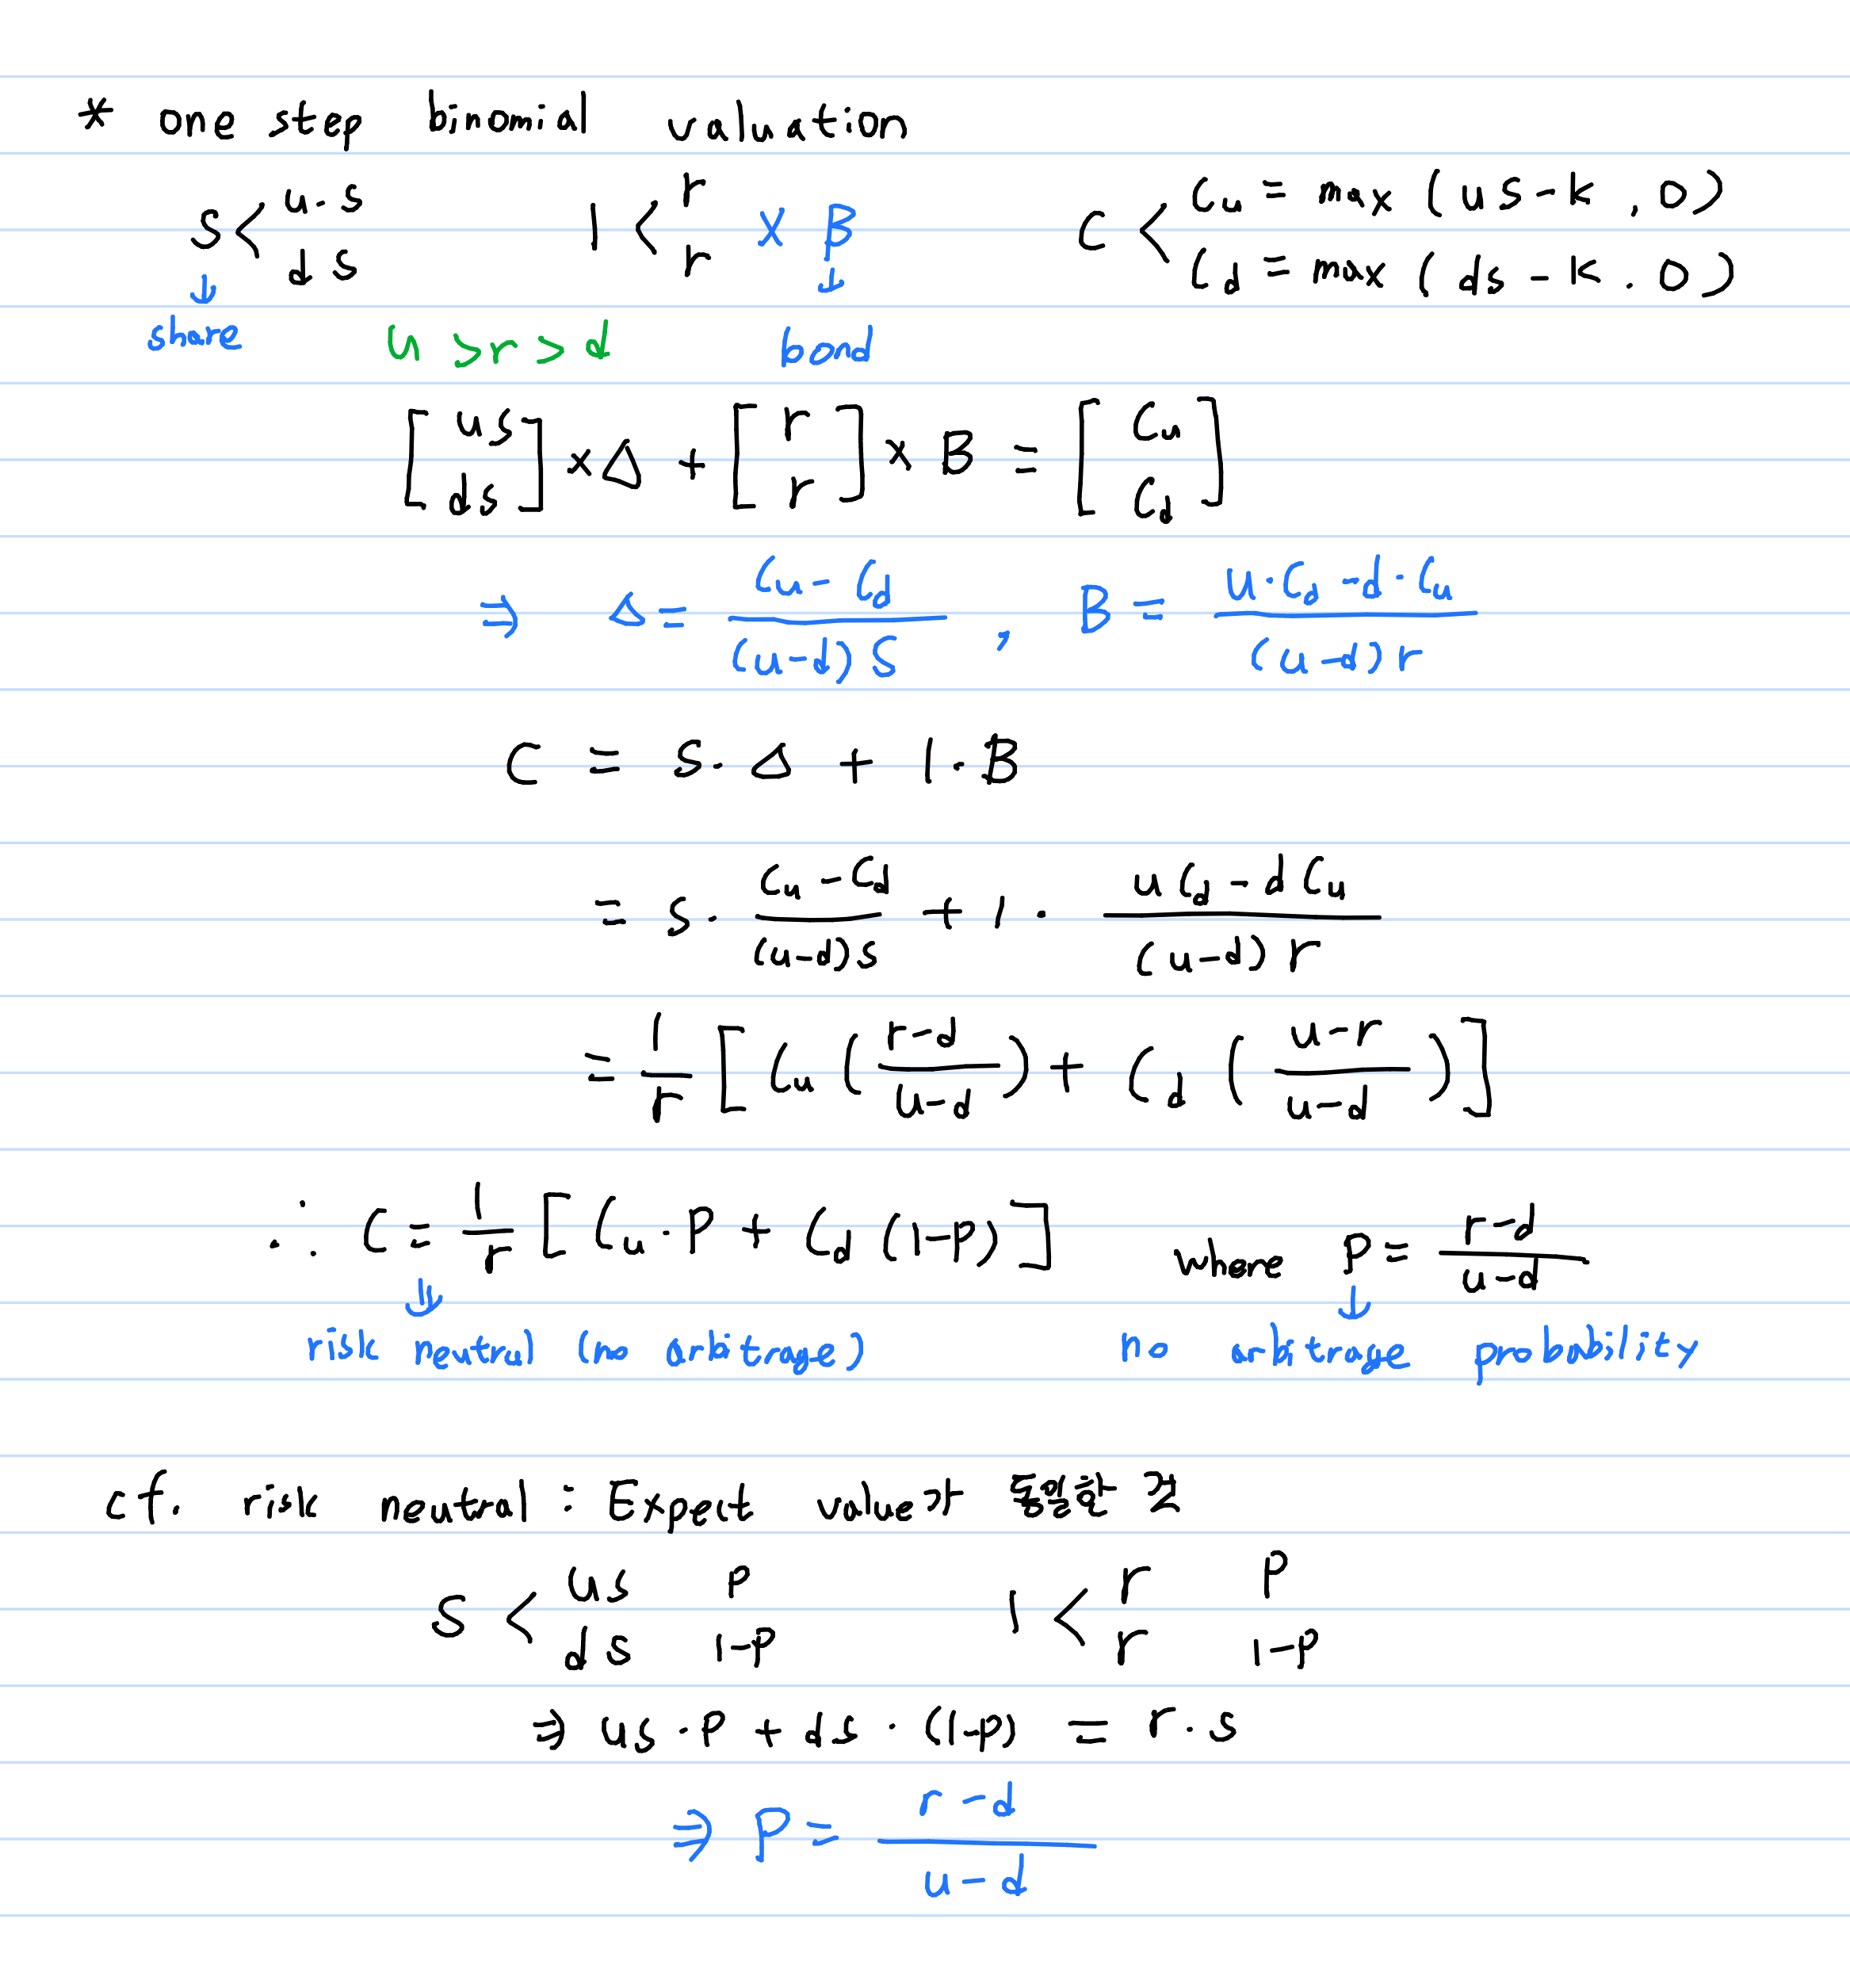 * one step binomial valuation
S < u·s ds 1 < r r × B C < Cu = max (us-k, 0) Cd = max (ds-k. 0)
↓ share u > r > d ↓ bond
[us ds] × Δ + [r r] × B = [Cu Cd]
⇒ Δ = (Cu - Cd) / (u-d)S , B = (u·Cd - d·Cu) / (u-d)r
C = S·Δ + 1·B
= s· (Cu - Cd) / (u-d)s + 1· (uCd - dCu) / (u-d)r
= 1/r [Cu ((r-d)/(u-d)) + Cd ((u-r)/(u-d))]
∴ C = 1/r [Cu·P + Cd (1-p)] where P = (r-d)/(u-d)
↓ ↓
risk neutral (no arbitrage) no arbitrage probability
cf. risk neutral : Expect value가 동일한 것
S < us P ds 1-P 1 < r P r 1-P
⇒ us·P + ds·(1-p) = r·s
⇒ P = (r-d)/(u-d)